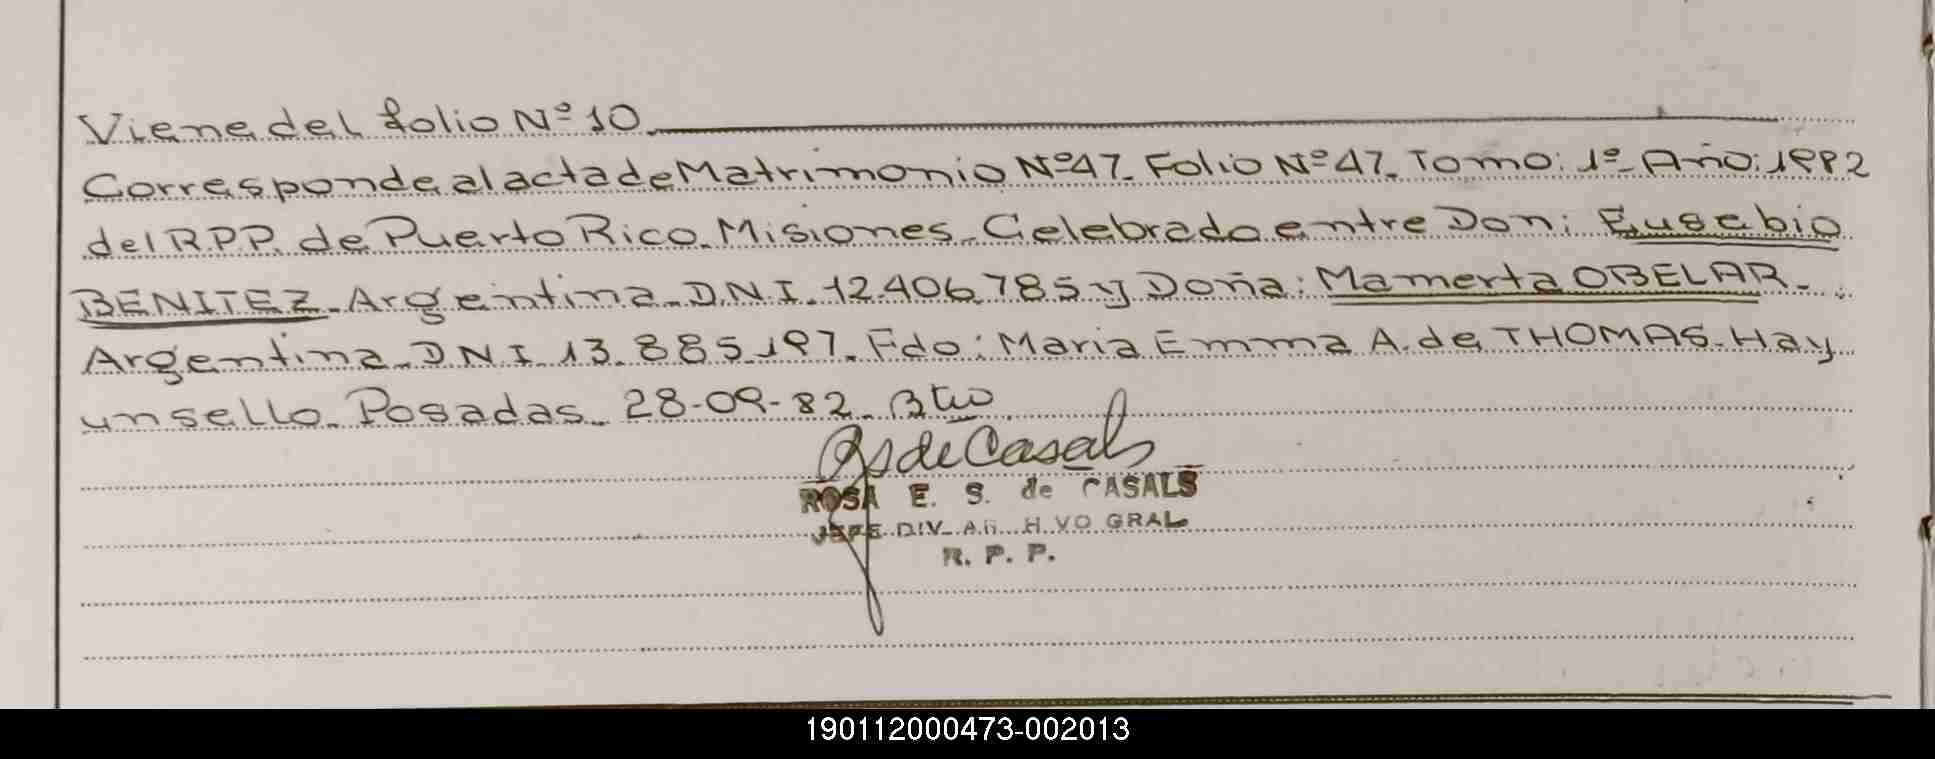 Viene del folio Nº 10
Corresponde al acta de Matrimonio Nº 47. Folio Nº 47. Tomo: 1º Año: 1982
del R.P.P. de Puerto Rico. Misiones. Celebrado entre Don: Eusebio
BENITEZ. Argentina. D.N.I. 12.406.785 y Doña: Mamerta OBELAR.
Argentina. D.N.I. 13.885.197. Fdo: Maria Emma A. de THOMAS. Hay
un sello. Posadas. 28-09-82.
RS de Casals
ROSA E. S. de CASALS
JEFE DIV. AR H VO GRAL
R. P. P.
190112000473-002013